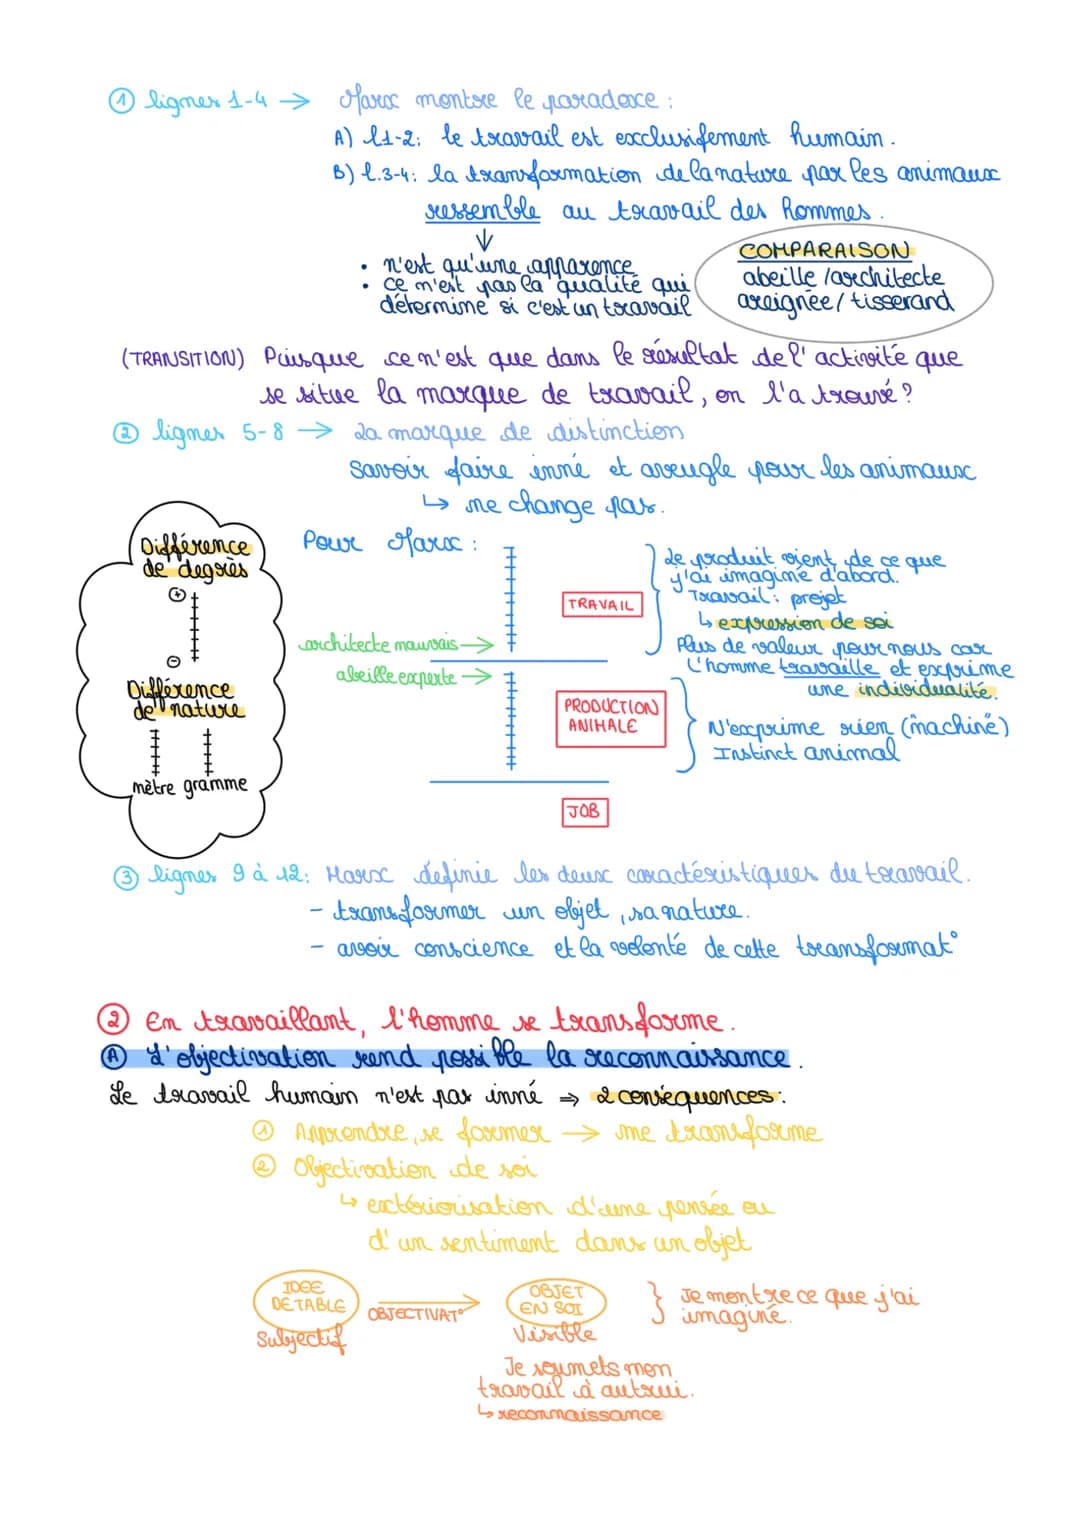 ① lignes 1-4 → Marx montre le paradoxe :
A) l1-2: le travail est exclusifement humain.
B) l.3-4: la transformation de la nature par les animaux
ressemble au travail des hommes.
↓
• n'est qu'une apparence
• ce n'est pas la qualité qui
détermine si c'est un travail
COMPARAISON
abeille /architecte
areignée/ tisserand
(TRANSITION) Puisque ce n'est que dans le résultat de l'activité que
se situe la marque de travail, on l'a trouvé?
② lignes 5-8 → La marque de distinction
Savoir faire inné et aveugle pour les animaux
↳ ne change pas.
Différence
de degrès
⊕
⊖
Différence
de nature
mètre gramme
Pour Marx :
architecte mauvais →
abeille experte →
TRAVAIL
Le produit vient de ce que
j'ai imaginé d'abord.
Travail: projet
↳ expression de soi
Plus de valeur pour nous car
l'homme travaille et exprime
une individualité.
PRODUCTION
ANIMALE
N'exprime rien (machine)
Instinct animal
JOB
③ lignes 9 à 12: Marx définie les deux caractéristiques du travail.
- transformer un objet, sa nature.
- avoir conscience et la volonté de cette transformat°
② En travaillant, l'homme se transforme.
Ⓐ L'objectivation rend possible la reconnaissance.
Le travail humain n'est pas inné ⇒ 2 conséquences :
① Apprendre, se former → me transforme
② Objectivation de soi
↳ extériorisation d'une pensée ou
d'un sentiment dans un objet
IDEE
DE TABLE
Subjectif
OBJECTIVAT°
OBJET
EN SOI
Visible
Je montre ce que j'ai
imaginé.
Je soumets mon
travail à autrui.
↳ reconnaissance